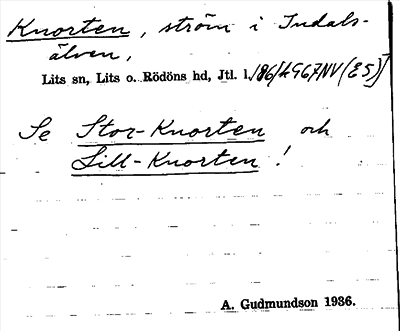 Knorten, ström i Indals-
älven,
Lits sn, Lits o. Rödöns hd, Jtl. l.
Se Stor-Knorten och
Lill-Knorten!
A. Gudmundson 1936.